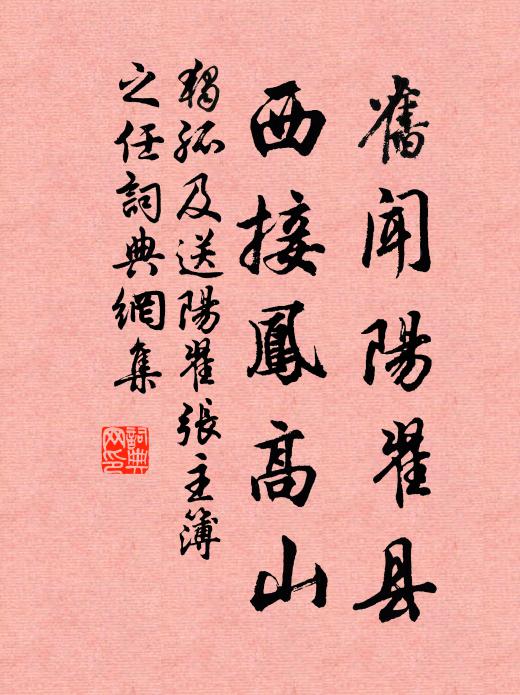 舊聞陽翟县
西接鳳高山
獨孤及送陽翟張主簿
之任詞典網集
詞典网印